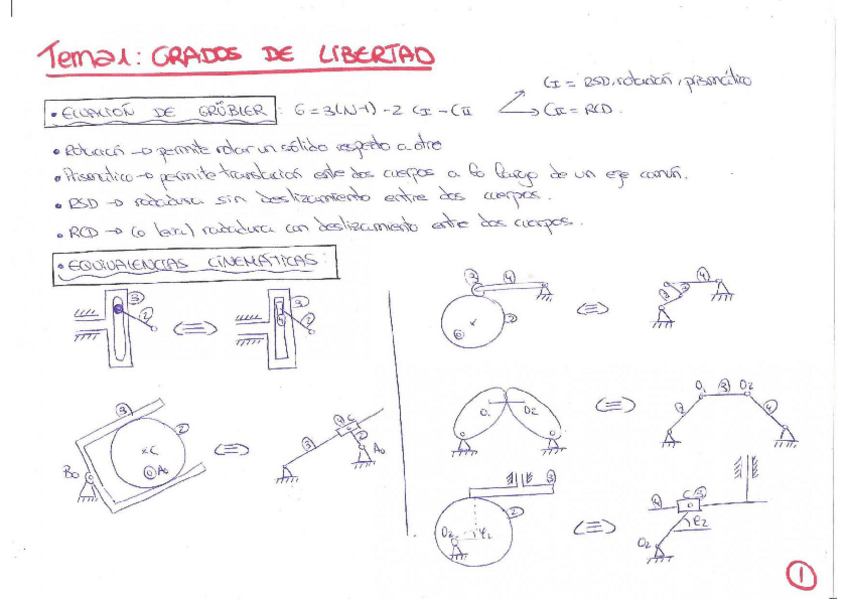 Tema 1: GRADOS DE LIBERTAD
• ECUACIÓN DE GRÜBLER : G = 3(N-1) - 2 CI - CII
CI = RSD, rotación, prismático
CII = RCD.
• Rotación → permite rotar un sólido respecto a otro
• Prismático → permite translación entre dos cuerpos a lo largo de un eje común.
• RSD → rodadura sin deslizamiento entre dos cuerpos.
• RCD → (o leva) rodadura con deslizamiento entre dos cuerpos.
• EQUIVALENCIAS CINEMÁTICAS:
3 2
3 4 2
3 4 2
3 2 4
3 2 C A0 B0
4 C 3 2 A0
O1 O2
O1 3 O2 2 4
3 2 O2 φ2
4 C 3 φ2 O2
1